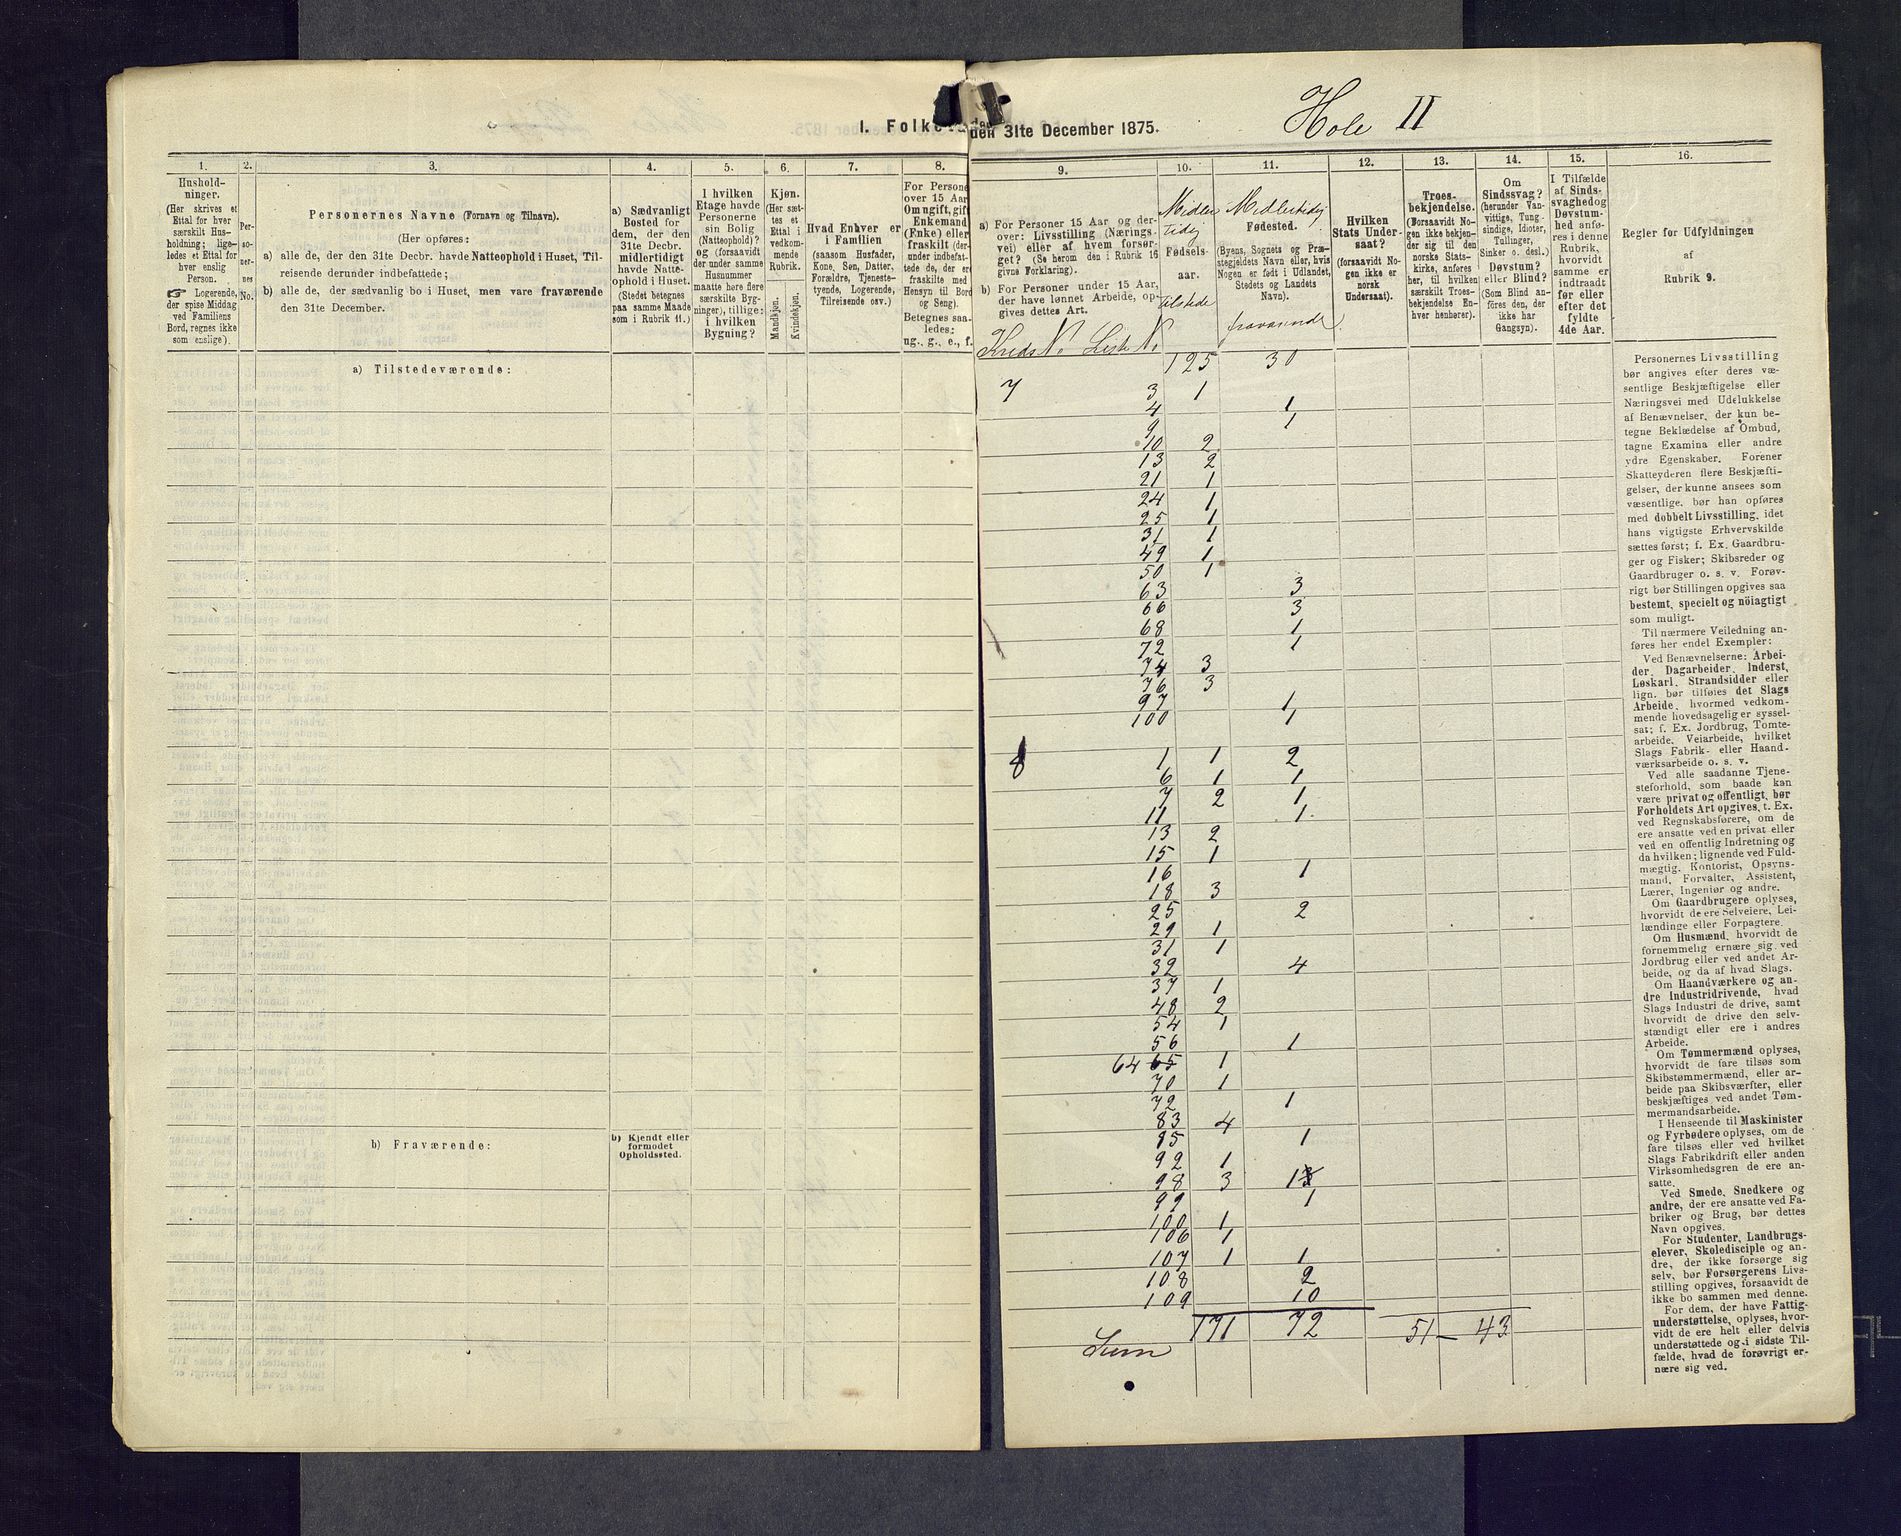 I. Folketæ
den 31te December 1875.
Hole II
1.
Hushold-
ninger.
(Her skrives et
Ettal for hver
særskilt Hus-
holdning; lige-
ledes et Ettal for
hver enslig
Person.
☞ Logerende,
der spise Middag
ved Familiens
Bord, regnes ikke
som enslige).
2.
Per-
so-
ner-
nes
No.
3.
Personernes Navne (Fornavn og Tilnavn).
(Her opføres:
a) alle de, der den 31te Decbr. havde Natteophold i Huset, Til-
reisende derunder indbefattede;
b) alle de, der sædvanlig bo i Huset, men vare fraværende
den 31te December.
4.
a) Sædvanligt
Bosted for
dem, der den
31te Decbr.
midlertidigt
havde Natte-
ophold i Huset.
(Stedet betegnes
paa samme Maade
som i Rubrik 11.)
5.
I hvilken
Etage havde
Personerne
sin Bolig
(Natteophold)?
og (forsaavidt
der under samme
Husnummer
maatte høre flere
særskilte Byg-
ninger), tillige:
i hvilken
Bygning?
6.
Kjøn.
(Her sæt-
tes et
Ettal i
vedkom-
mende
Rubrik.
Mandkjøn.
Kvindekjøn.
7.
Hvad Enhver er
i Familien
(saasom Husfader,
Kone, Søn, Datter,
Forældre, Tjeneste-
tyende, Logerende,
Tilreisende osv.)
8.
For Persone
over 15 Aar
Om ugift, gift
Enkemand
(Enke) eller
fraskilt (der-
under indbefat-
tede de, der er
fraskilte med
Hensyn til Bord
og Seng).
Betegnes saa-
ledes:
ug., g., e., f.
9.
a) For Personer 15 Aar og der-
over: Livsstilling (Nærings-
vei) eller af hvem forsør-
get? (Se herom den i Rubrik 16
givne Forklaring).
b) For Personer under 15 Aar,
der have lønnet Arbeide, op-
gives dettes Art.
Kreds No. Liste No.
10.
Midler
tidig
Fødsels-
aar.
tilstede
11.
Midlertidig
Fødested.
(Byens, Sognets og Præ-
stegjeldets Navn eller, hvis
Nogen er født i Udlandet,
Stedets og Landets
Navn).
fraværende
12.
Hvilken
Stats Under-
saat?
(forsaavidt No-
gen ikke er
norsk
Undersaat).
13.
Troes-
bekjendelse.
(Forsaavidt No-
gen ikke bekjen-
der sig til den
norske Stats-
kirke, anføres
her, til hvilken
særskilt Troes-
bekjendelse En-
hver henhører).
14.
Om
Sindssvag?
(herunder Van-
vittige, Tung-
sindige, Idioter,
Tullinger,
Sinker o. desl.)
Døvstum?
eller Blind?
(Som Blind an-
føres den, der
ikke har
Gangsyn).
15.
I Tilfælde
af Sinds-
svaghed og
Døvstum-
hed anfø-
res i denne
Rubrik,
hvorvidt
samme er
indtraadt
før eller
efter det
fyldte
4de Aar.
16.
Regler for Udfyldningen
af
Rubrik 9.
a) Tilstedeværende:
b) Fraværende:
b) Kjendt eller
formodet
Opholdssted.
125 30
7 3 1
4 1
9 1
10 2
13 2
21 1
24 1
25 1
31 1
49 1
50 1
63 3
66 3
68 1
72 1
74 3
76 3
97 1
100 1
8 1 1 2
6 1 1
7 2 1
11 1
13 2
15 1
16 1
18 3
25 2
29 1
31 1
32 4
37 1
48 2
54 1
56 1
64 65 1
70 1
72 1
83 4
85 1
92 1
98 3 1
99 1
100 1
106 1
107 1 1
108 2
109 10
Sum 171 72 51 - 43
Personernes Livsstilling
bør angives efter deres væ-
sentlige Beskjæftigelse eller
Næringsvei med Udelukkelse
af Benævnelser, der kun be-
tegne Beklædelse af Ombud,
tagne Examina eller andre
ydre Egenskaber. Forener
Skatteyderen flere Beskjæfti-
gelser, der kunne ansees som
væsentlige, bør han opføres
med dobbelt Livsstilling, idet
hans vigtigste Erhvervskilde
sættes først; f. Ex. Gaardbru-
ger og Fisker; Skibsreder og
Gaardbruger o. s. v. Forøv-
rigt bør Stillingen opgives saa
bestemt, specielt og nøiagtigt
som muligt.
Til nærmere Veiledning an-
føres her endel Exempler:
Ved Benævnelserne: Arbei-
der, Dagarbeider, Inderst,
Løskarl, Strandsidder eller
lign. bør tilføies det Slags
Arbeide, hvormed vedkom-
mende hovedsagelig er syssel-
sat; f. Ex. Jordbrug, Tomte-
arbeide, Veiarbeide, hvilket
Slags Fabrik- eller Haand-
værksarbeide o. s. v.
Ved alle saadanne Tjene-
steforhold, som baade kan
være privat og offentligt, bør
Forholdets Art opgives, t. Ex.
ved Regnskabsførere, om de
ere ansatte ved en privat eller
ved en offentlig Indretning og
da hvilken; lignende ved Fuld-
mægtig, Kontorist, Opsyns-
mand, Forvalter, Assistent,
Lærer, Ingeniør og andre.
Om Gaardbrugere oplyses,
hvorvidt de ere Selveiere, Lei-
lændinge eller Forpagtere.
Om Husmænd, hvorvidt de
fornemmelig ernære sig ved
Jordbrug eller ved andet Ar-
beide, og da af hvad Slags.
Om Haandværkere og an-
dre Industridrivende, hvad
Slags Industri de drive, samt
hvorvidt de drive den selv-
stændigt eller ere i andres
Arbeide.
Om Tømmermænd oplyses,
hvorvidt de fare tilsøs som
Skibstømmermænd, eller ar-
beide paa Skibsværfter, eller
beskjæftiges ved andet Tøm-
mermandsarbeide.
I Henseende til Maskinister
og Fyrbødere oplyses, om de
fare tilsøs eller ved hvilket
Slags Fabrikdrift eller anden
Virksomhedsgren de ere an-
satte.
Ved Smede, Snedkere og
andre, der ere ansatte ved Fa-
briker og Brug, bør dettes
Navn opgives.
For Studenter, Landbrugs-
elever, Skoledisciple og an-
dre, der ikke forsørge sig
selv, bør Forsørgerens Livs-
stilling opgives, forsaavidt de
ikke bo sammen med denne.
For dem, der have Fattig-
understøttelse, oplyses, hvor-
vidt de ere helt eller delvis
understøttede og i sidste Til-
fælde, hvad de forøvrigt er-
nære sig ved.